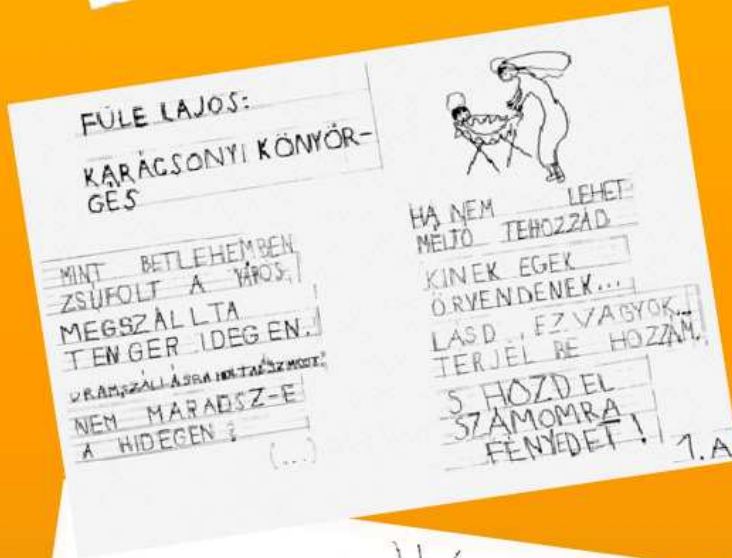 FÜLE LAJOS:
KARÁCSONYI KÖNYÖR-
GÉS
MINT BETLEHEMBEN
ZSÚFOLT A VÁROS,
MEGSZÁLLTA
TENGER IDEGEN.
URAM, SZÁLLÁSRA
NEM MARADSZ-E
A HIDEGEN?
(...)
HA NEM LEHET
MÉLTÓ TEHOZZÁD
KINEK EGEK
ÖRVENDENEK...
LÁSD, EZ VAGYOK...
TÉRJÉL BE HOZZÁM,
S HOZD EL
SZÁMOMRA
FÉNYEDET!
1.A